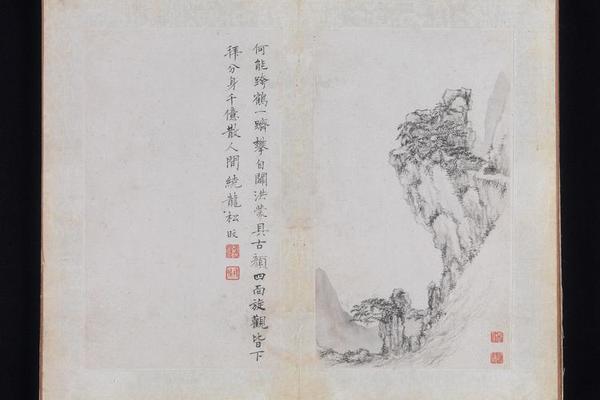 何能跨鶴一躋攀自闢洪蒙具古顏四面旋觀皆下
拜分身千億散人間繞龍松